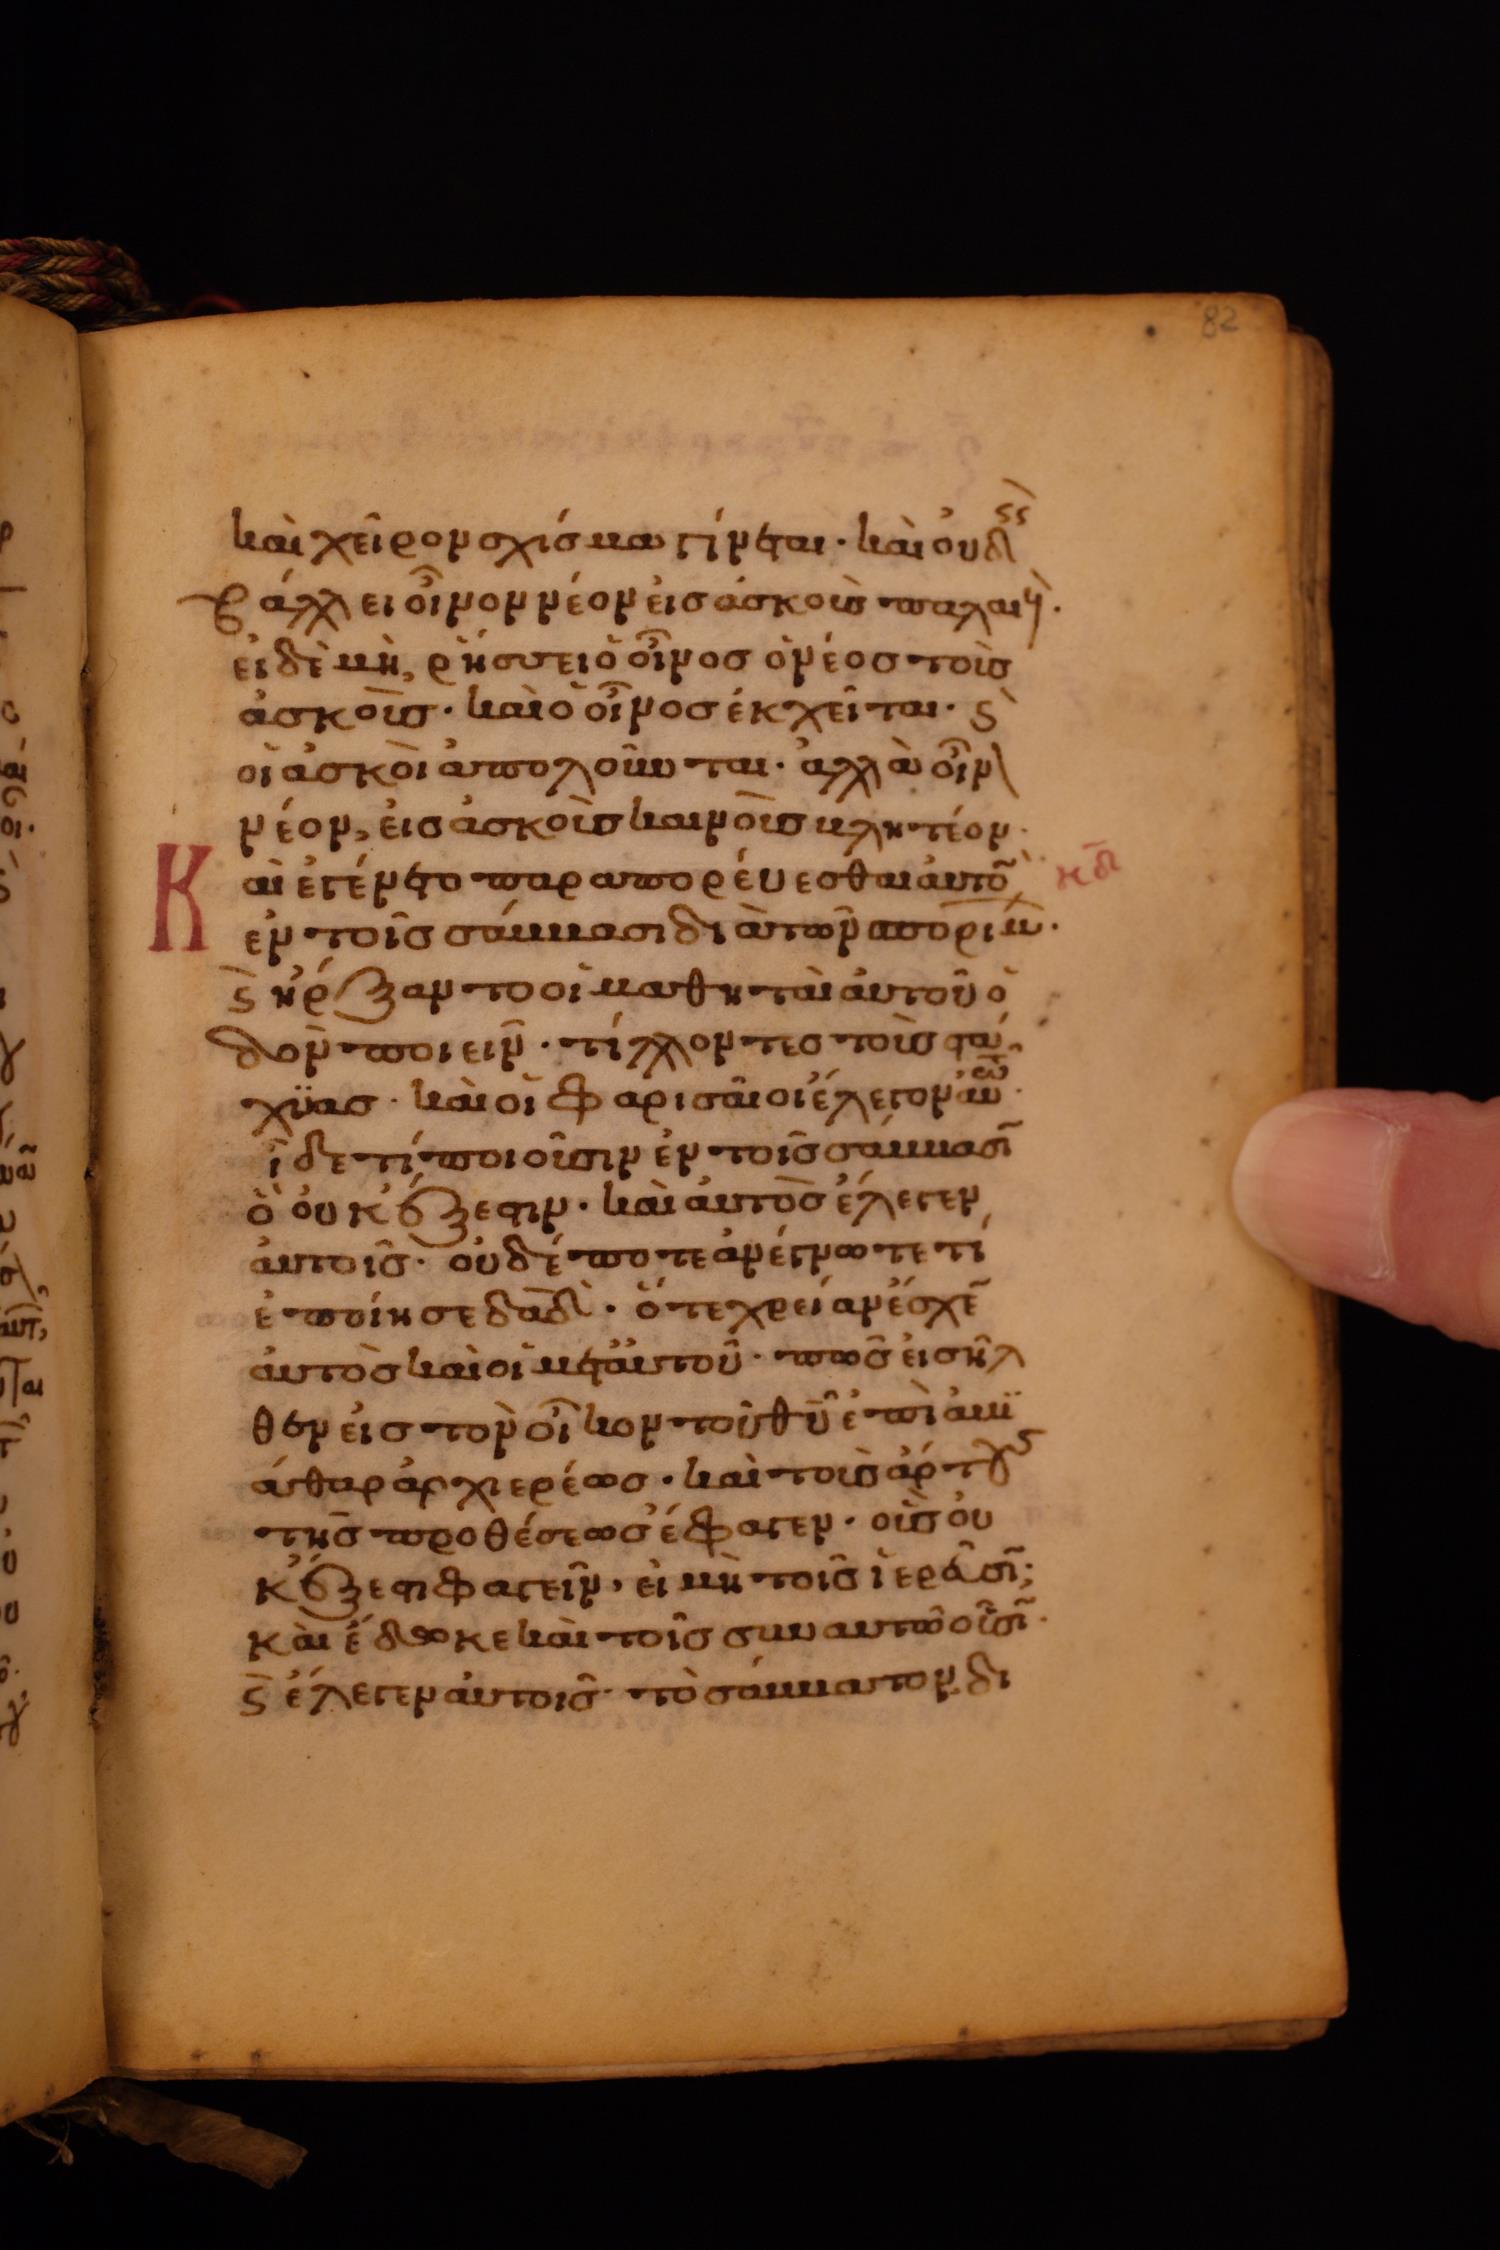 82
καὶ χεῖρον σχίσμα γίνεται· καὶ οὐδεὶς
βάλλει οἶνον νέον εἰς ἀσκοὺς παλαιούς·
εἰ δὲ μὴ, ῥήσσει ὁ οἶνος ὁ νέος τοὺς
ἀσκοὺς· καὶ ὁ οἶνος ἐκχεῖται· ϛ̀
οἱ ἀσκοὶ ἀπολοῦνται· ἀλλὰ οἶν\
νέον, εἰς ἀσκοὺς καινοὺς βλητέον·
Καὶ ἐγένετο παραπορεύεσθαι αὐτὸ̃
ἐν τοῖς σάββασι διὰ τῶν σπορίμ͂·
ϛ̀ ἤρξαντο οἱ μαθηταὶ αὐτοῦ ὁ
δὸν ποιεῖν· τίλλοντες τοὺς στά
χϋας· καὶ οἱ φαρισαῖοι ἔλεγον αὐτῶ·
ἴδε τί ποιοῦσιν ἐν τοῖς σάββασῖ
ὃ οὐκ ἔξεστιν· καὶ αὐτὸς ἔλεγεν
αὐτοῖς· οὐδέποτε ἀνέγνωτε τί
ἐποίησε δᾱδ̄· ὅτε χρείαν ἔσχε̃
αὐτὸς καὶ οἱ μετ' αὐτοῦ· πῶς εἰσῆλ
θεν εἰς τὸν οἶκον τοῦ θ̄ῡ ἐπὶ ἀβϊ
άθαρ ἀρχιερέως· καὶ τοὺς ἄρτους
τῆς προθέσεως ἔφαγεν· οὓς οὐ
κ ἔξεστι φαγεῖν, εἰ μὴ τοῖς ἱερεῦσῖ;
καὶ ἔδωκε καὶ τοῖς συν αυτῶ οὖσῖ·
ϛ̀ ἔλεγεν αὐτοῖς· τὸ σάββατον δι
κδ̄